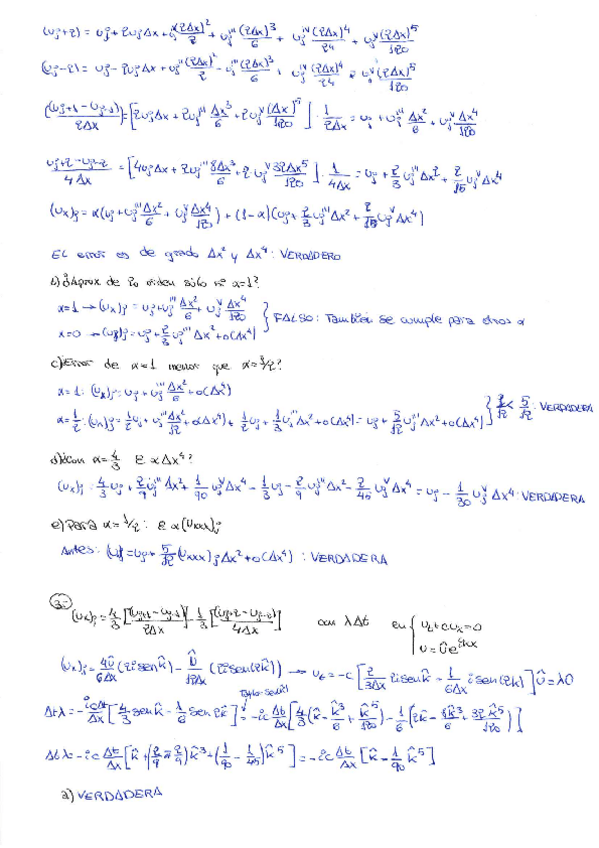 (uj+2) = uj + 2uj Δx + uj'' (2Δx)²/2 + uj''' (2Δx)³/6 + uj^IV (2Δx)⁴/24 + uj^V (2Δx)⁵/120
(uj-2) = uj - 2uj Δx + uj'' (2Δx)²/2 - uj''' (2Δx)³/6 + uj^IV (2Δx)⁴/24 - uj^V (2Δx)⁵/120
(uj+1 - uj-1)/2Δx = [2uj Δx + 2uj''' Δx³/6 + 2uj^V (Δx)⁵/120] · 1/2Δx = uj + uj''' Δx²/6 + uj^V Δx⁴/120
uj+2 - uj-2/4Δx = [4uj Δx + 2uj''' 8Δx³/6 + 2·uj^V 32Δx⁵/120] · 1/4Δx = uj + 2/3 uj''' Δx² + 2/15 uj^V Δx⁴
(ux)j = α(uj + uj''' Δx²/6 + uj^V Δx⁴/120) + (1-α)(uj + 2/3 uj''' Δx² + 2/15 uj^V Δx⁴)
EL error es de grado Δx² y Δx⁴: VERDADERO
b) ¿Aprox de 2o orden sólo si α=1?
α=1 → (ux)j = uj + uj''' Δx²/6 + uj^V Δx⁴/120
α=0 → (ux)j = uj + 2/3 uj''' Δx² + o(Δx⁴) } FALSO: También se cumple para otros α
c) ¿Error de α=1 menor que α=1/2?
α=1: (ux)j = uj + uj''' Δx²/6 + o(Δx⁴)
α=1/2: (ux)j = 1/2 uj + uj''' Δx²/12 + o(Δx⁴) + 1/2 uj + 1/3 uj''' Δx² + o(Δx⁴) = uj + 5/12 uj''' Δx² + o(Δx⁴) } 2/12 < 5/12: VERDADERA
d) ¿con α=4/3 E α Δx⁴?
(ux)j = 4/3 uj + 2/9 uj''' Δx² + 1/90 uj^V Δx⁴ - 1/3 uj - 2/9 uj''' Δx² - 2/45 uj^V Δx⁴ = uj - 1/30 uj^V Δx⁴: VERDADERA
e) Para α=1/2: E α (uxxx)j
Antes: (u)j = uj + 5/12 (uxxx)j Δx² + o(Δx⁴): VERDADERA
3-
(ux)j = 4/3 [(uj+1 - uj-1)/2Δx] - 1/3 [(uj+2 - uj-2)/4Δx] con λΔt en { ut + cux = 0
u = û e^ikx
(ux)j = 4û/6Δx (2i sen k̂) - û/12Δx (2i sen(2k̂)) → ut = -c [2/3Δx 2i sen k̂ - 1/6Δx i sen(2k̂)] û = λû
Taylor-sen(k)
Δtλ = -icΔt/Δx [4/3 sen k̂ - 1/6 sen 2k̂] = -ic Δt/Δx [4/3 (k̂ - k̂³/6 + k̂⁵/120) - 1/6 (2k̂ - 8k̂³/6 + 32k̂⁵/120)]
Δtλ = -ic Δt/Δx [k̂ + (2/9 - 2/9) k̂³ + (1/90 - 1/45) k̂⁵] = -ic Δt/Δx [k̂ - 1/90 k̂⁵]
a) VERDADERA